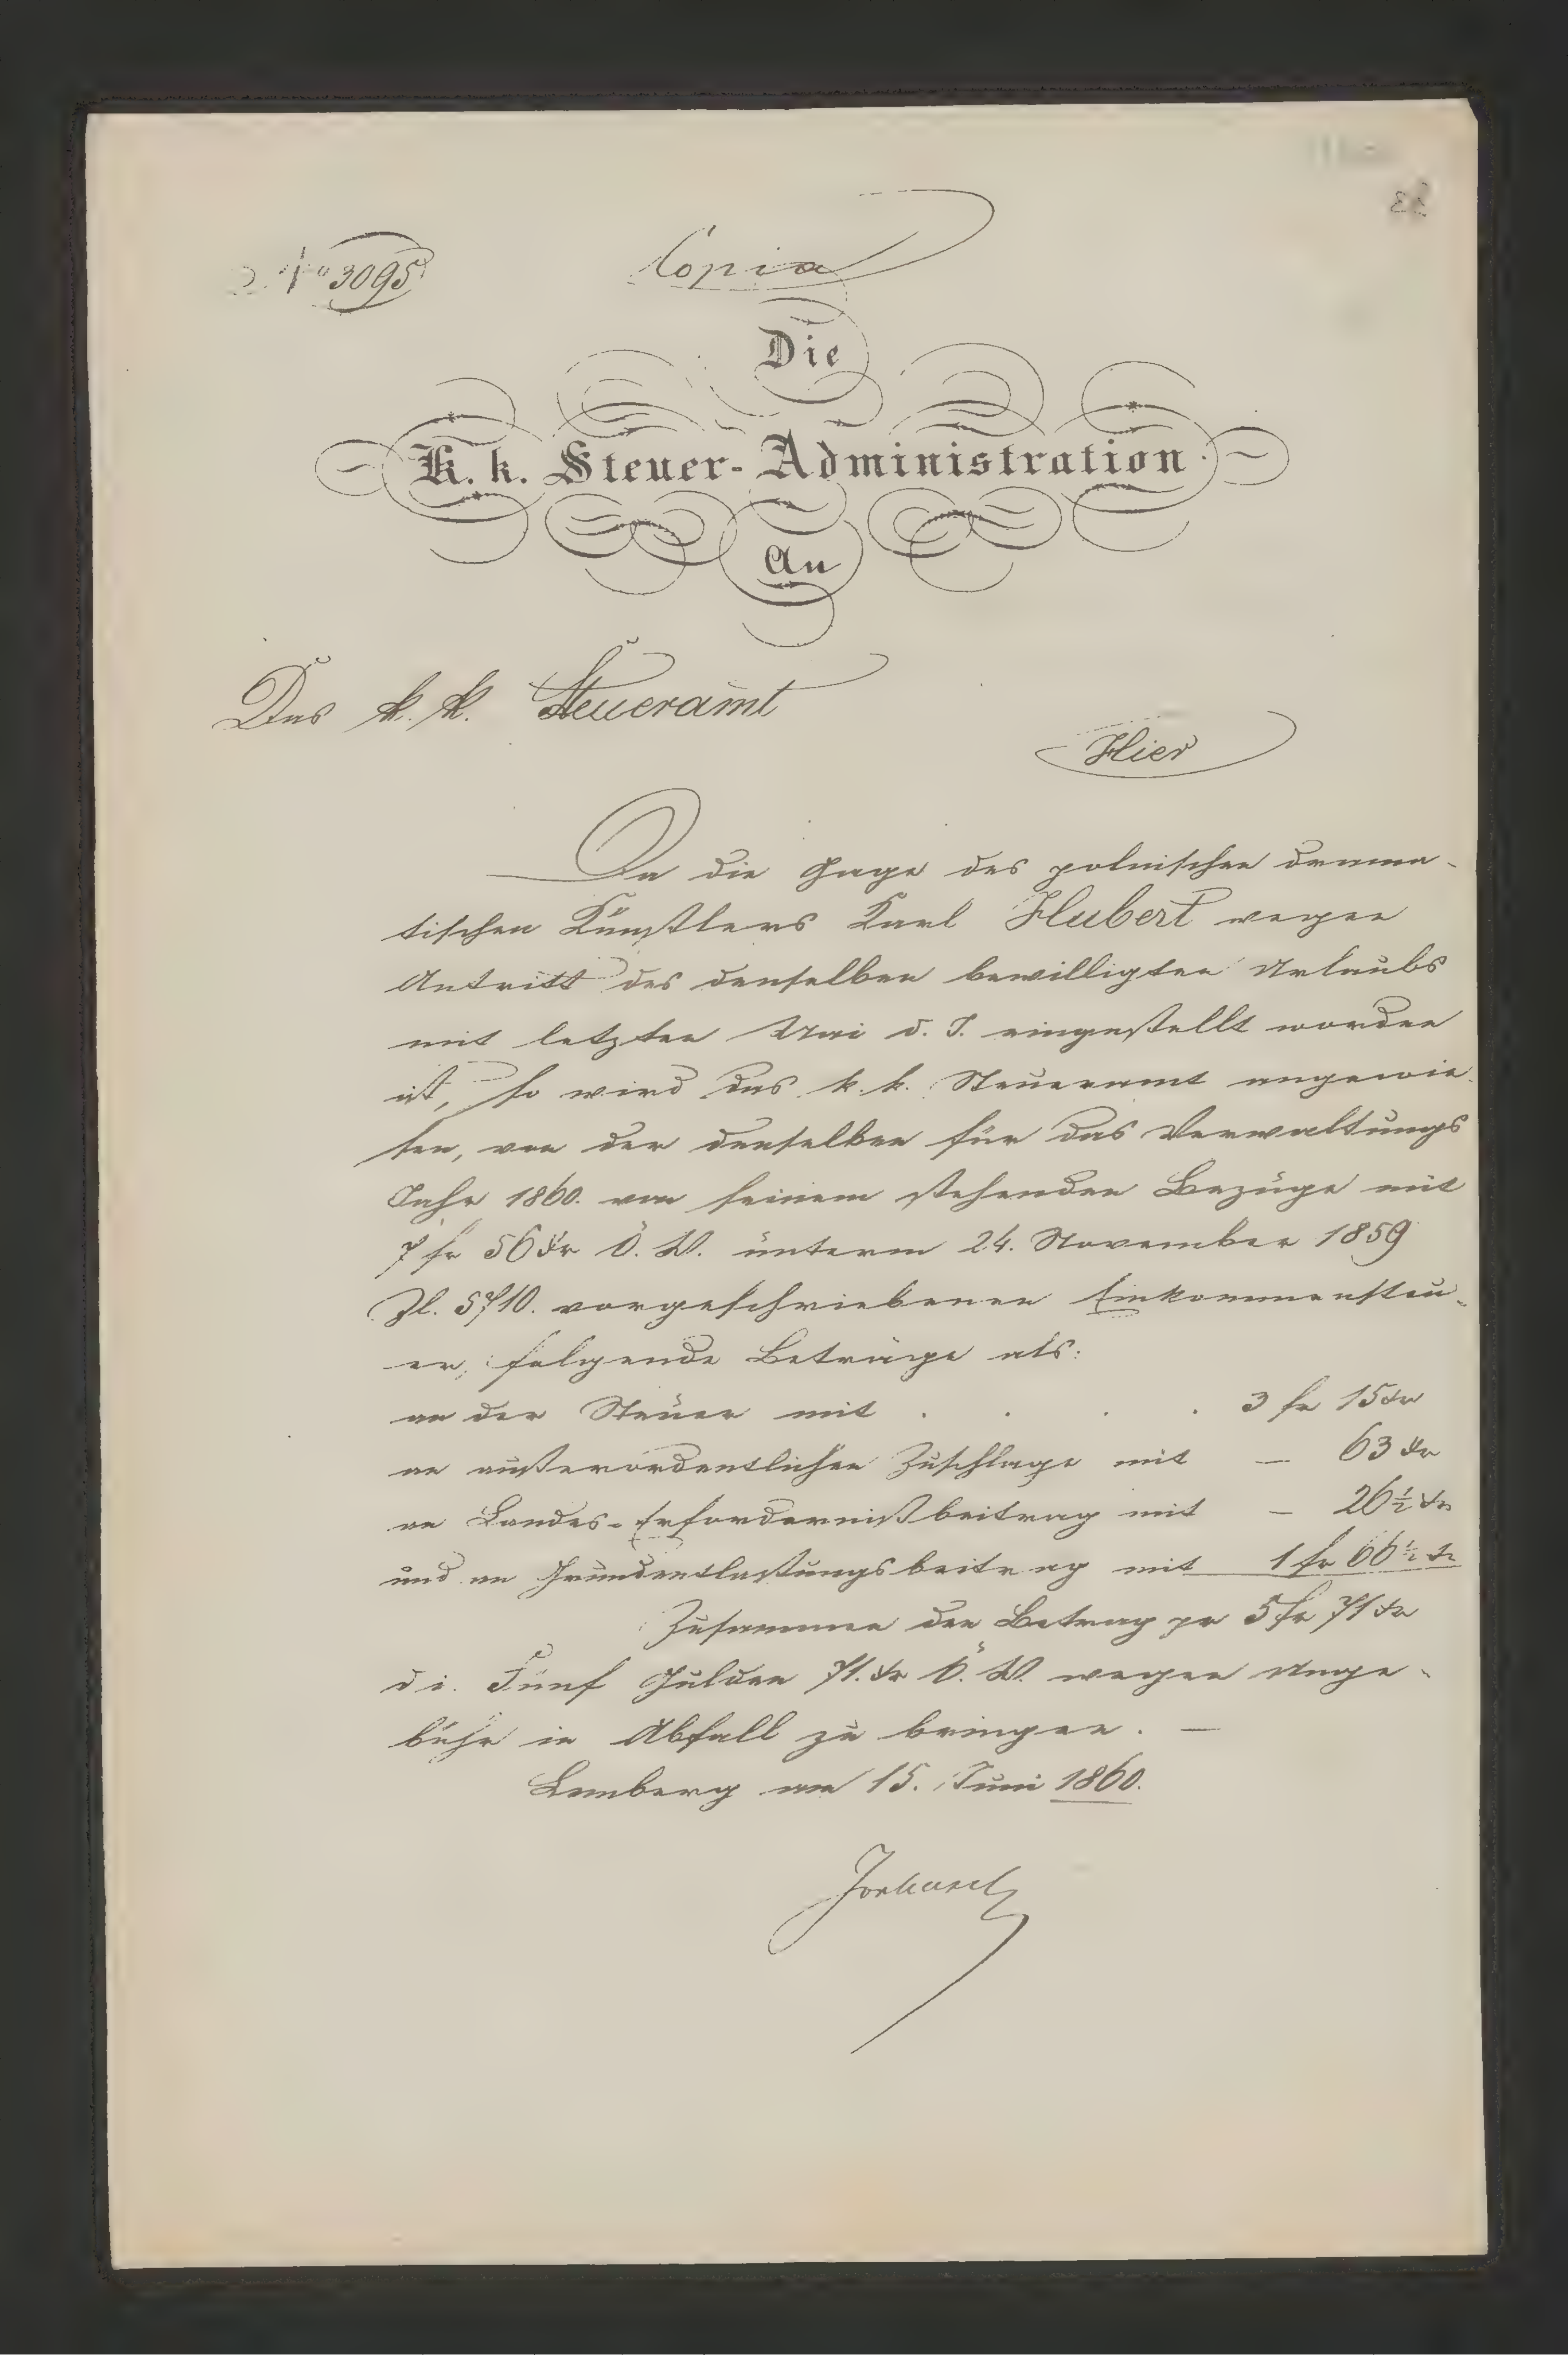 No 3095
Copia
Die
K. k. Steuer-Administration
An
Das k. k. Steueramt
Hier
Da die Gage des polnischen drama-
tischen Künstlers Karl Hubert wegen
Antritt des denselben bewilligten Urlaubs
mit letzten Mai d. J. eingestellt worden
ist, so wird das k. k. Steueramt angewie-
sen, von der denselben für das Verwaltungs
Jahr 1860. von seinem stehenden Bezüge mit
7 fr 56 xr Ö. W. unterm 24. November 1859
Zl. 5710. vorgeschriebenen Einkommensteu-
er, folgende Beträge als:
an der Steuer mit . . . . 3 fr 15 xr
an außerordentlichen Zuschlage mit — 63 xr
an Landes-Erfordernißbeitrag mit — 26 1/2 xr
und an Grundentlastungsbeitrag mit 1 fr 66 1/2 xr
Zusammen den Betrag pr 5 fr 71 xr
d. i. Fünf Gulden 71. xr Ö. W. wegen Unge-
bühr in Abfall zu bringen. —
Lemberg am 15. Juni 1860.